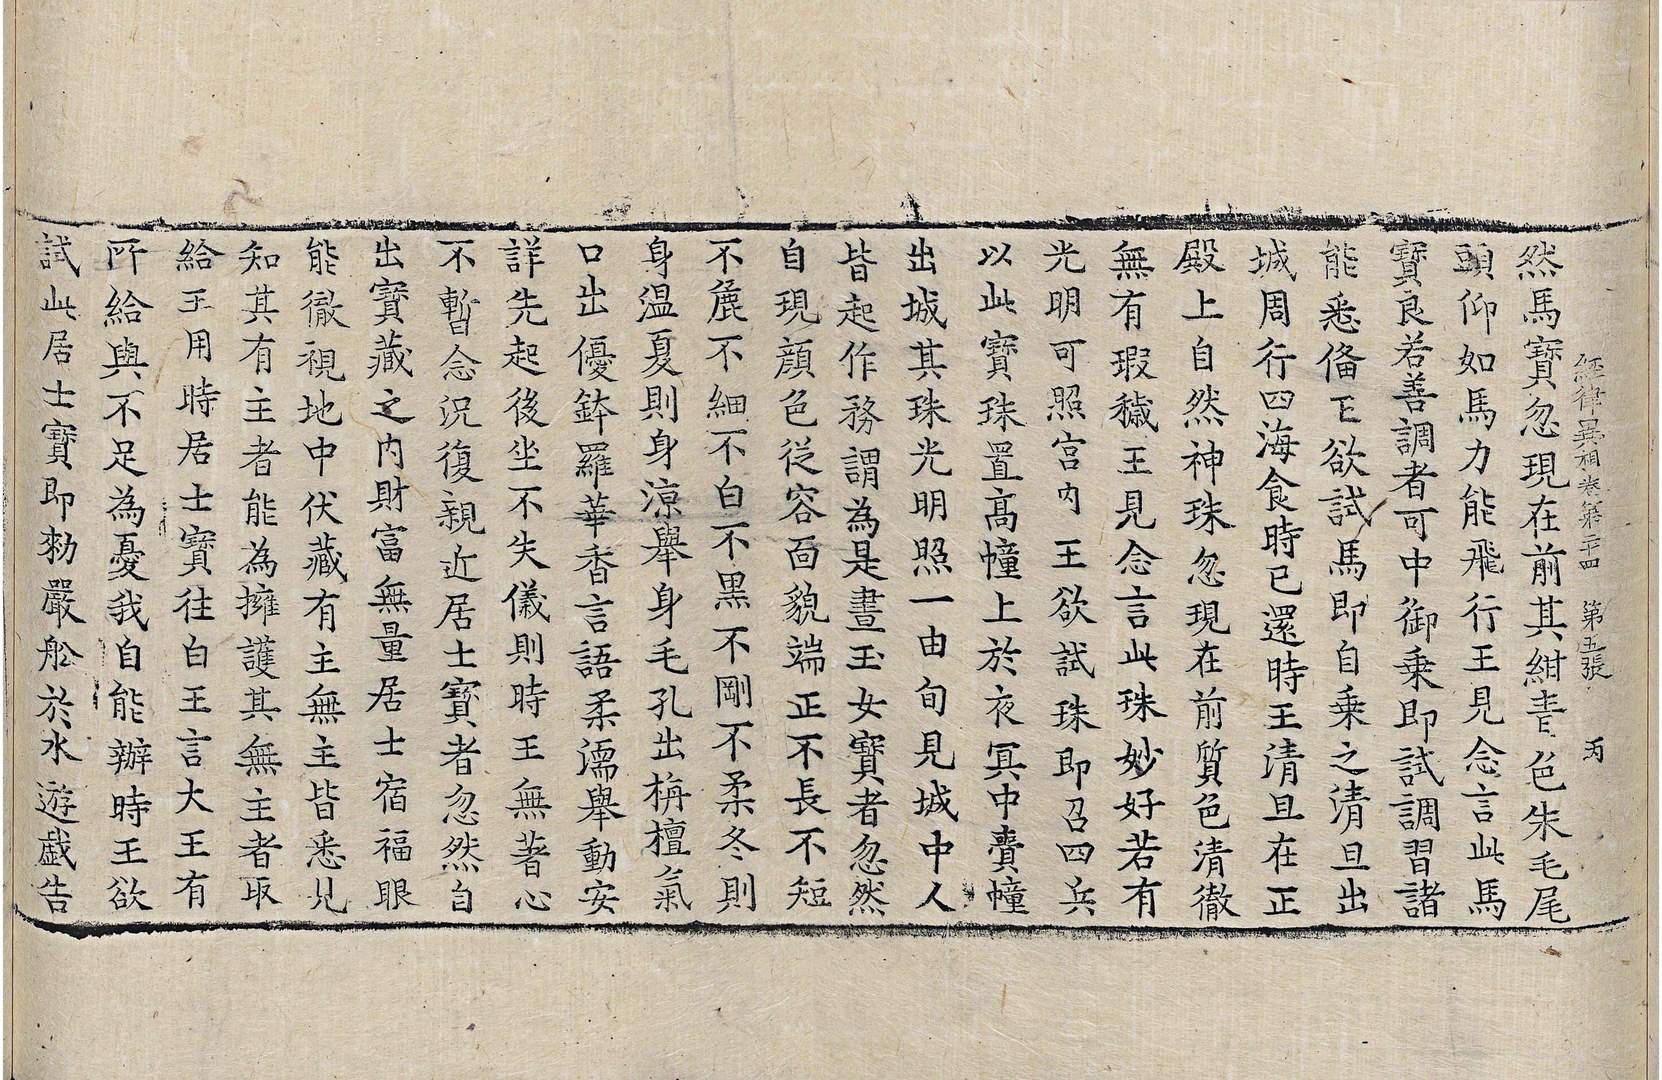 經律異相卷第二十四　第五張　丙
然馬寶忽現在前其紺青色朱毛尾
頭仰如馬力能飛行王見念言此馬
寶良若善調者可中御乗即試調習諸
能悉俻王欲試馬即自乗之清旦出
城周行四海食時已還時王清旦在正
殿上自然神珠忽現在前質色清徹
無有瑕穢王見念言此珠妙好若有
光明可照宮内王欲試珠即召四兵
以此寶珠置髙幢上於夜冥中賷幢
出城其珠光明照一由旬見城中人
皆起作務謂為是晝玉女寶者忽然
自現顔色従容面貌端正不長不短
不麁不細不白不黒不剛不柔冬則
身温夏則身涼舉身毛孔出栴檀氣
口出優鉢羅華香言語柔濡舉動安
詳先起後坐不失儀則時王無著心
不暫念況復親近居士寶者忽然自
出寶藏之内財富無量居士宿福眼
能徹視地中伏藏有主無主皆悉見
知其有主者能為擁護其無主者取
給王用時居士寶往白王言大王有
所給與不足為憂我自能辦時王欲
試此居士寶即勑嚴舩於水遊戯告